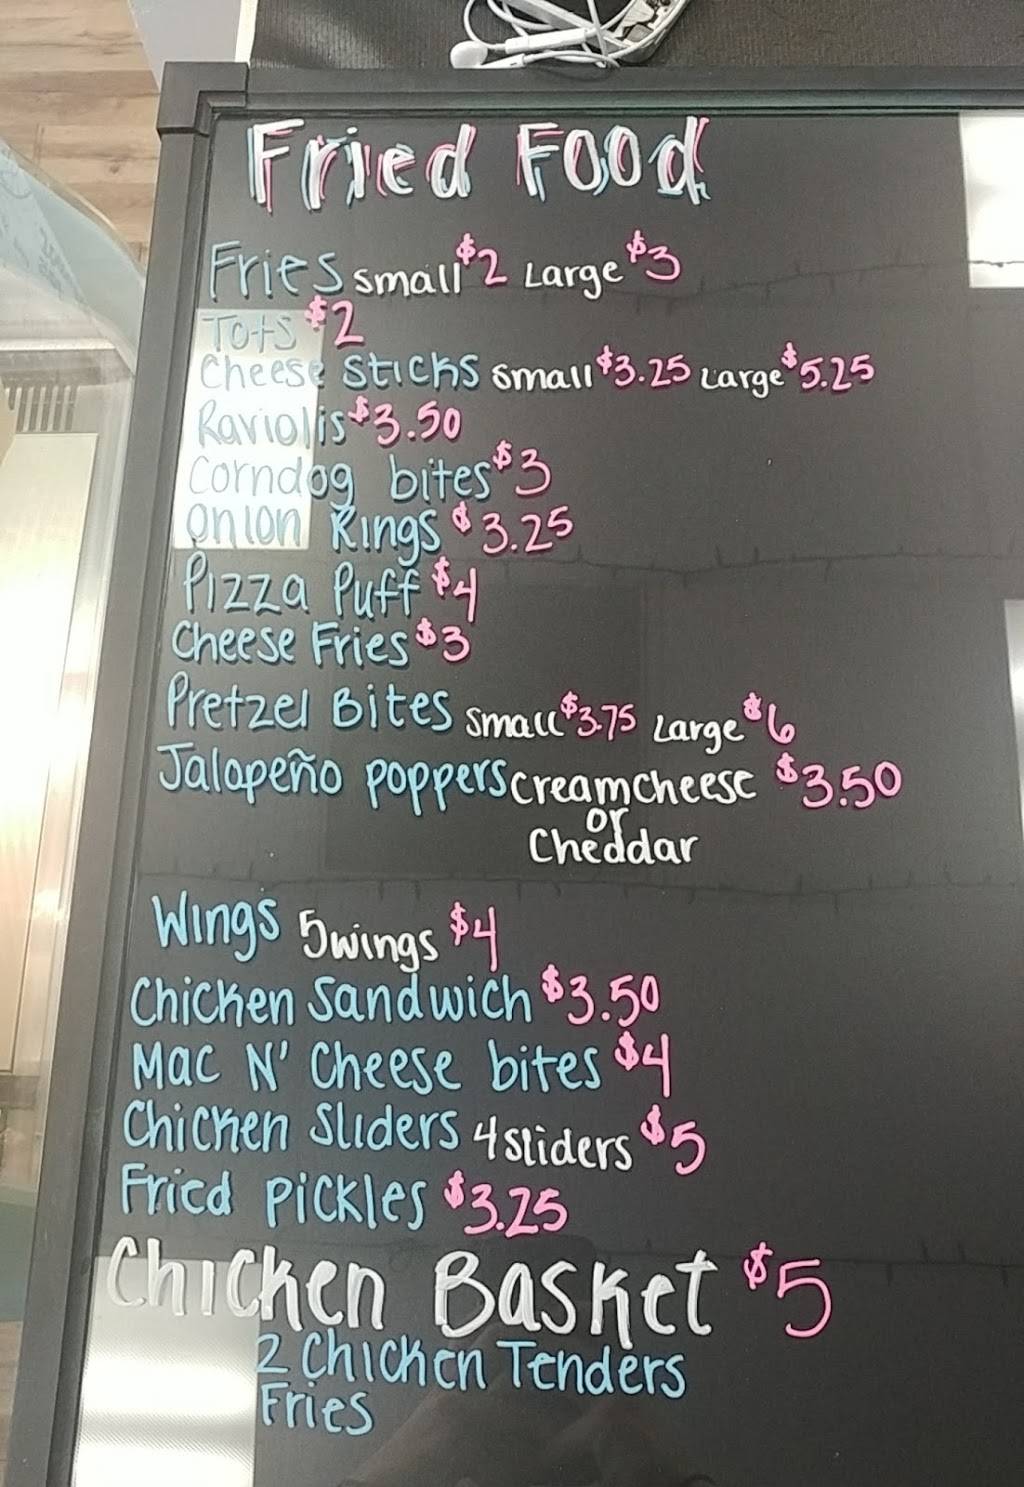 Fried Food
Fries small $2 Large $3
Tots $2
Cheese sticks small $3.25 Large $5.25
Raviolis $3.50
Corndog bites $3
Onion Rings $3.25
Pizza Puff $4
Cheese Fries $3
Pretzel Bites small $3.75 Large $6
Jalapeño poppers creamcheese $3.50
or
Cheddar
Wings 5 wings $4
Chicken Sandwich $3.50
Mac N' Cheese bites $4
Chicken Sliders 4 sliders $5
Fried pickles $3.25
Chicken Basket $5
2 Chicken Tenders
Fries